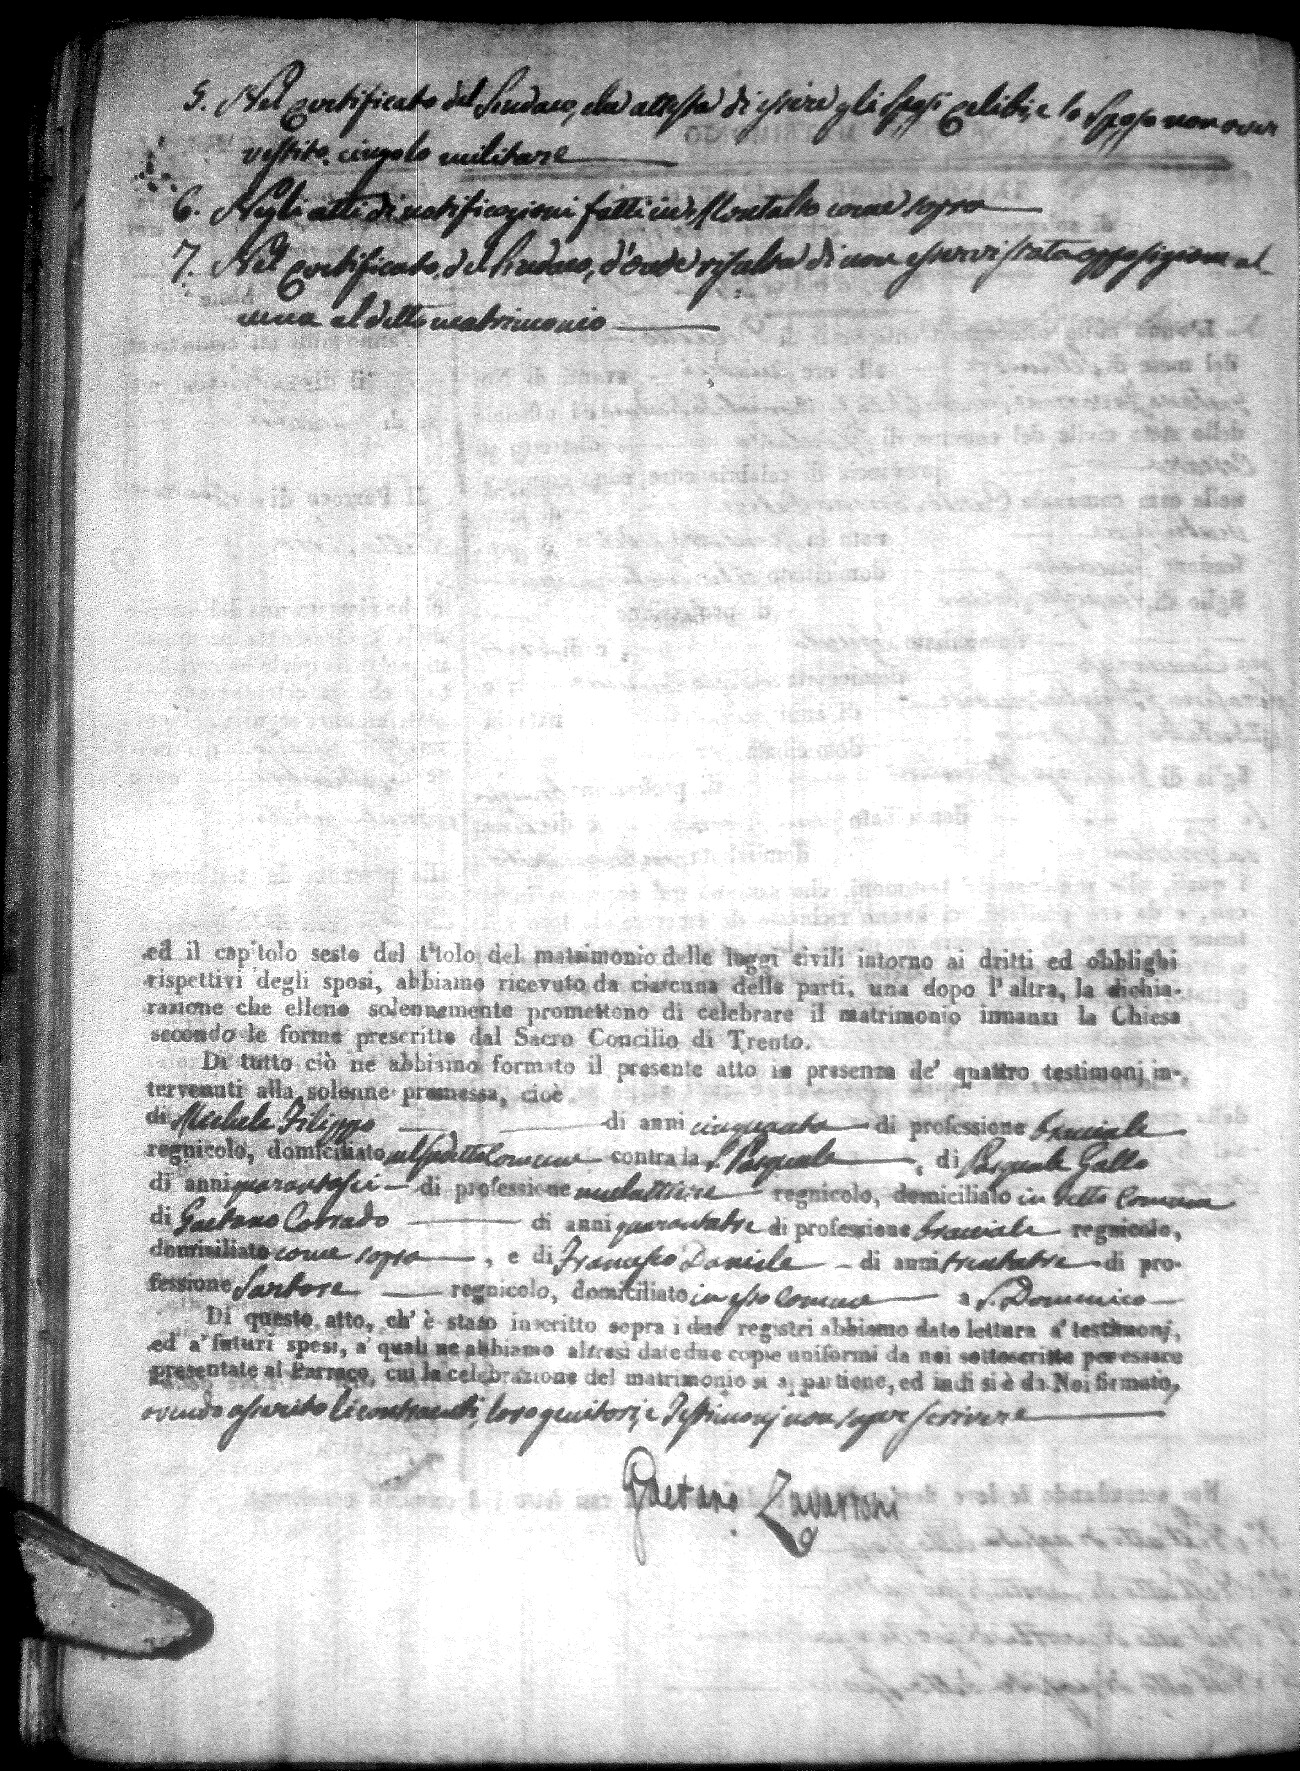 5. Nel certificato del Sindaco, che attesta di essere gli Sposi celibi, e lo Sposo non aver
vestito cingolo militare
6. Negli atti di notificazioni fatti in Montalto come sopra
7. Nel certificato del Sindaco, d'onde risulta di non esservi stata opposizione al-
cuna al detto matrimonio
ed il capitolo sesto del titolo del matrimonio delle leggi civili intorno ai dritti ed obblighi
rispettivi degli sposi, abbiamo ricevuto da ciascuna delle parti, una dopo l'altra, la dichia-
razione che elleno solennemente promettono di celebrare il matrimonio innanzi la Chiesa
secondo le forme prescritte dal Sacro Concilio di Trento.
Di tutto ciò ne abbiamo formato il presente atto in presenza de' quattro testimonj in-
tervenuti alla solenne promessa, cioè
di Michele Filippo di anni cinquanta di professione bracciale
regnicolo, domiciliato nel detto Comune contrada S. Pasquale, di Pasquale Gallo
di anni quarantasei di professione mulattiere regnicolo, domiciliato in detto Comune
di Gaetano Corrado di anni quarantatre di professione bracciale regnicolo,
domiciliato come sopra, e di Francesco Daniele di anni trentatre di pro-
fessione Sartore regnicolo, domiciliato in esso Comune a S. Domenico
Di questo atto, ch' è stato inscritto sopra i due registri abbiamo dato lettura a' testimonj,
ed a' futuri sposi, a' quali ne abbiamo altresì date due copie uniformi da noi sottoscritte per essere
presentate al Parroco, cui la celebrazione del matrimonio si appartiene, ed indi si è da Noi firmato,
avendo asserito li contraenti, loro genitori, e Testimonj non saper scrivere
Gaetano Zavarroni